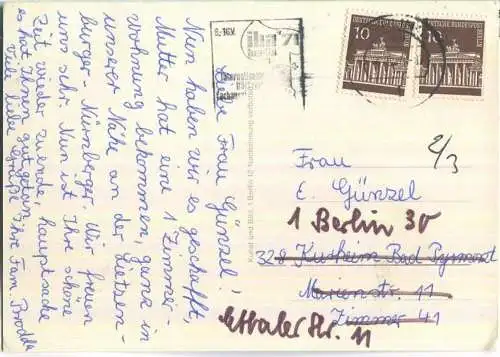 Liebe Frau Günzel,
Nun haben wir es geschafft,
Mutter hat eine 1 Zimmer-
wohnung bekommen, ganz in
unserer Nähe an der Lietzen-
burger - Nürnberger. Wir freuen
uns sehr. Nun ist Ihre schöne
Zeit wieder zuende, hauptsache
es hat Ihnen gut getan.
Viele liebe Grüße Ihre Fam. Brodda
Kunst und Bild, 1 Berlin 12
DEUTSCHE BUNDESPOST BERLIN
10
DEUTSCHE BUNDESPOST BERLIN
10
'71
2/3
Frau
E. Günzel
1 Berlin 30
328 Kurheim Bad Pyrmont
Marienstr. 11
Zimmer 41
Ettaler Str. 11